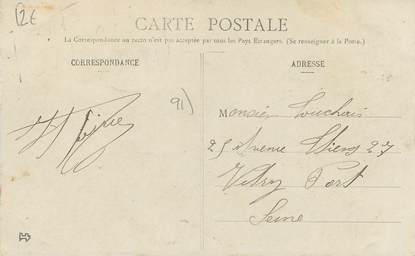 12€
CARTE POSTALE
La Correspondance au recto n'est pas acceptée par tous les Pays Etrangers. (Se renseigner à la Poste.)
CORRESPONDANCE
ADRESSE
91)
Monsieur
25 Avenue Thiers 27
Vitry Port
Seine